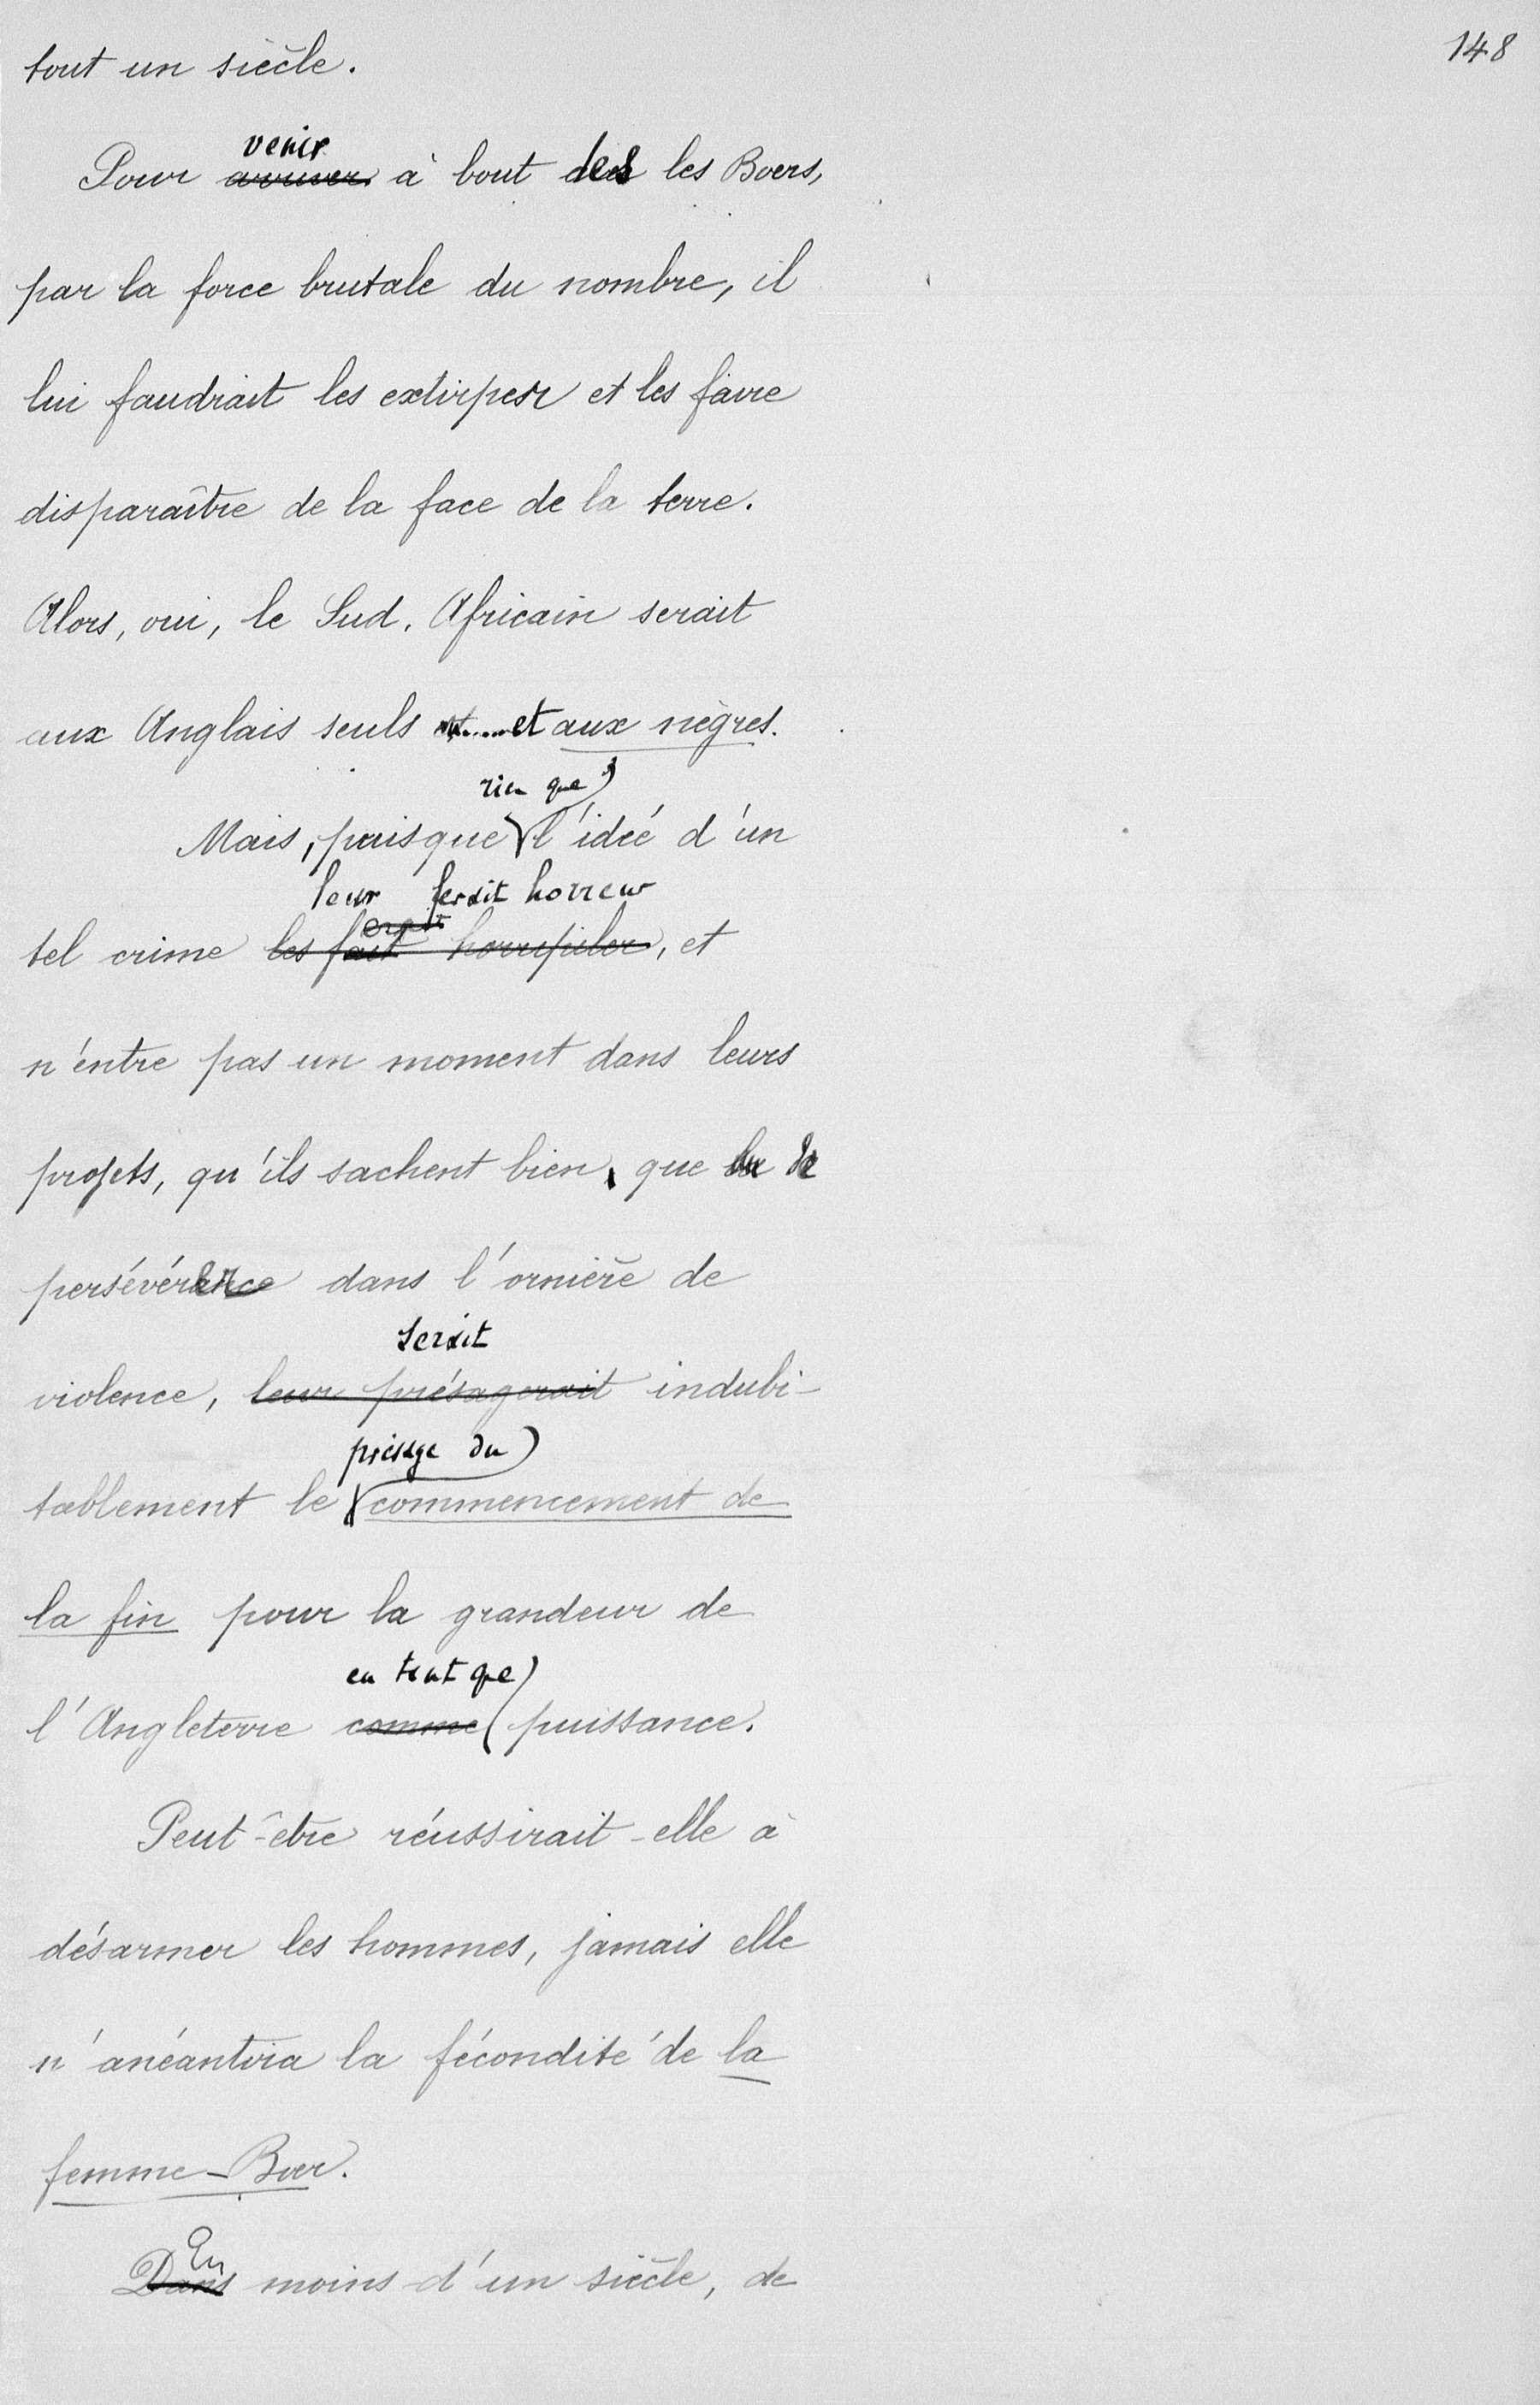 148
tout un siècle.
venir
Pour arriver à bout des les Boers,
par la force brutale du nombre, il
lui faudrait les extirper et les faire
disparaître de la face de la terre.
Alors, oui, le Sud. Africain serait
aux Anglais seuls ..... et aux nègres.
rien que
Mais, puisque l'idée d'un
leur ferait horreur
tel crime les fait horripiler, et
n'entre pas un moment dans leurs
projets, qu'ils sachent bien, que de
persévérer dans l'ornière de
serait
violence, leur présagerait indubi-
présage du
tablement le commencement de
la fin pour la grandeur de
en tant que
l'Angleterre comme puissance.
Peut-être réussirait-elle à
désarmer les hommes, jamais elle
n'anéantira la fécondité de la
femme-Boer.
En
Dans moins d'un siècle, de